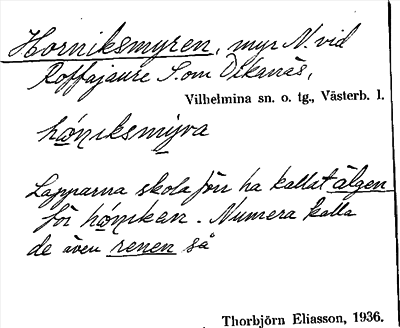 Horniksmyren, myr N. vid
Roffajaure S. om Dikanäs,
Vilhelmina sn. o. tg., Västerb. l.
hǫ́niksmỵra
Lapparna skola förr ha kallat älgen
för hǫ́nikan. Numera kalla
de även renen så
Thorbjörn Eliasson, 1936.